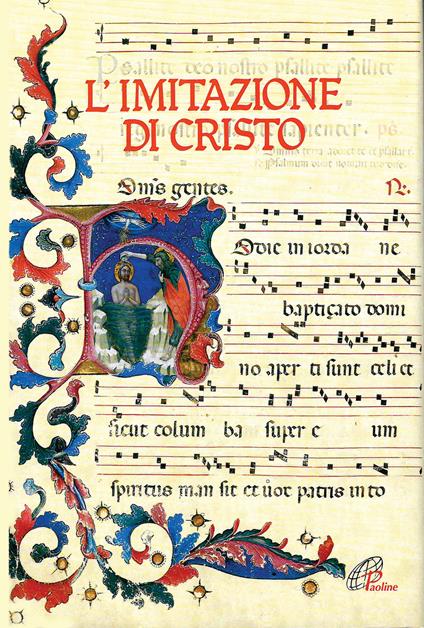 Psallite deo nostro psallite psallite
L'IMITAZIONE
DI CRISTO
Om̄s gentes. R.
Odie in iorda ne
baptiçato domi
no aper ti sunt celi et
sicut colum ba super e um
spiritus man sit et uox patris into
Paoline